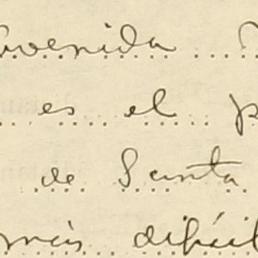 Avenida
es el p
de Santa
más difícil